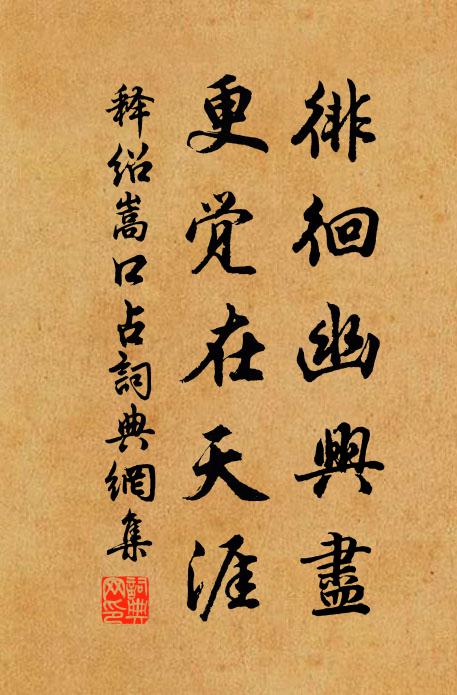 徘徊幽興盡
更覺在天涯
释绍嵩口占詞典網集
詞典
网印